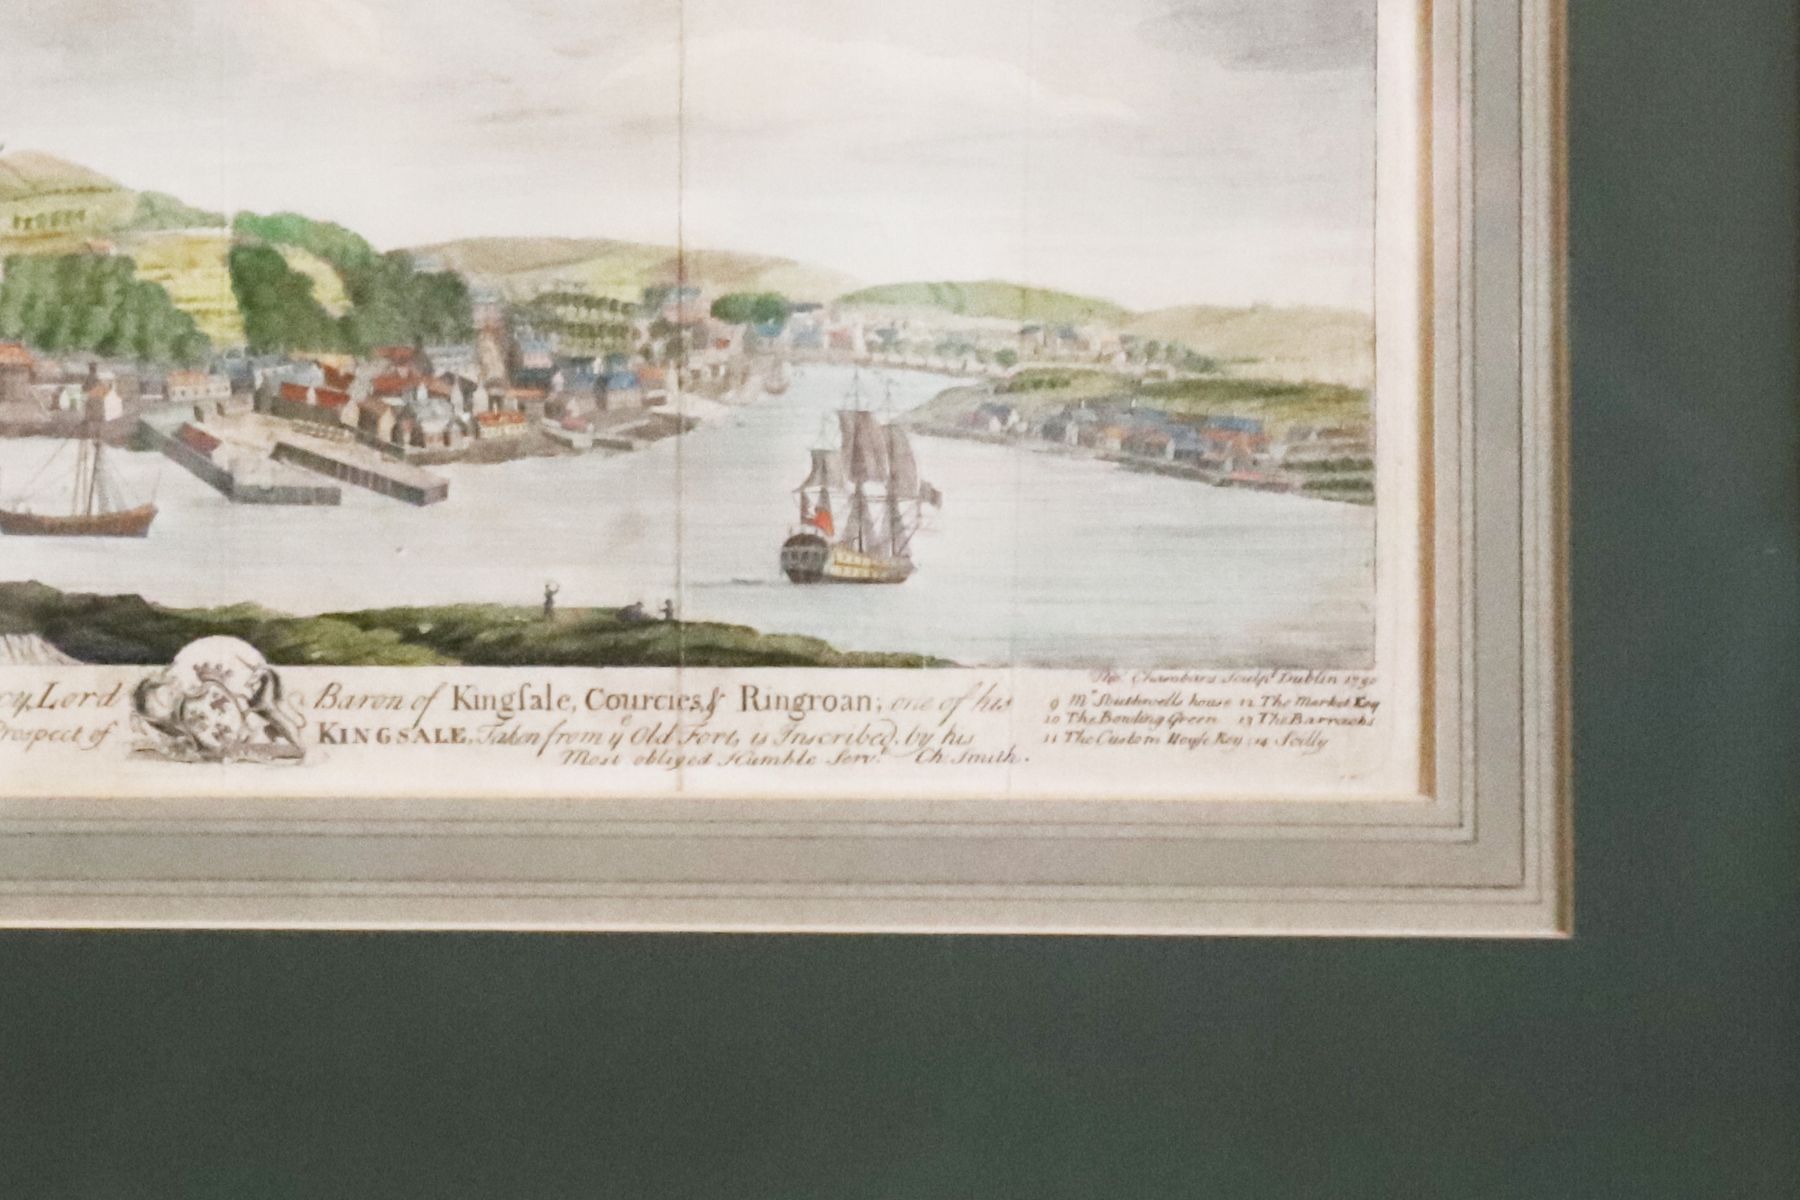 Thoˢ Chambars Sculpᵗ Dublin 1750
cy, Lord Baron of Kingſale, Courcies, & Ringroan; one of his
Prospect of KINGSALE, Taken from yᵉ Old Fort, is Inscribed, by his
Most obliged Humble Servᵗ Ch: Smith.
9 Mʳ Southwells house 12 The Market Key
10 The Bowling Green 13 The Barracks
11 The Custom Houſe Key 14 Scilly